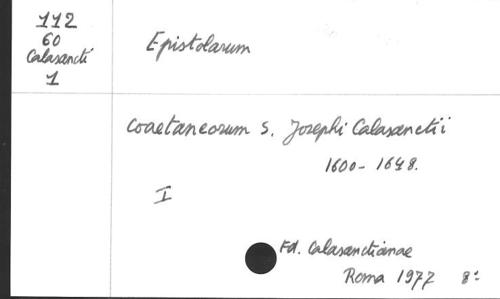 112
60
Calasancti
1
Epistolarum
Coaetaneorum S. Josephi Calasanctii
1600-1648.
I
Ed. Calasanctianae
Roma 1977 8º